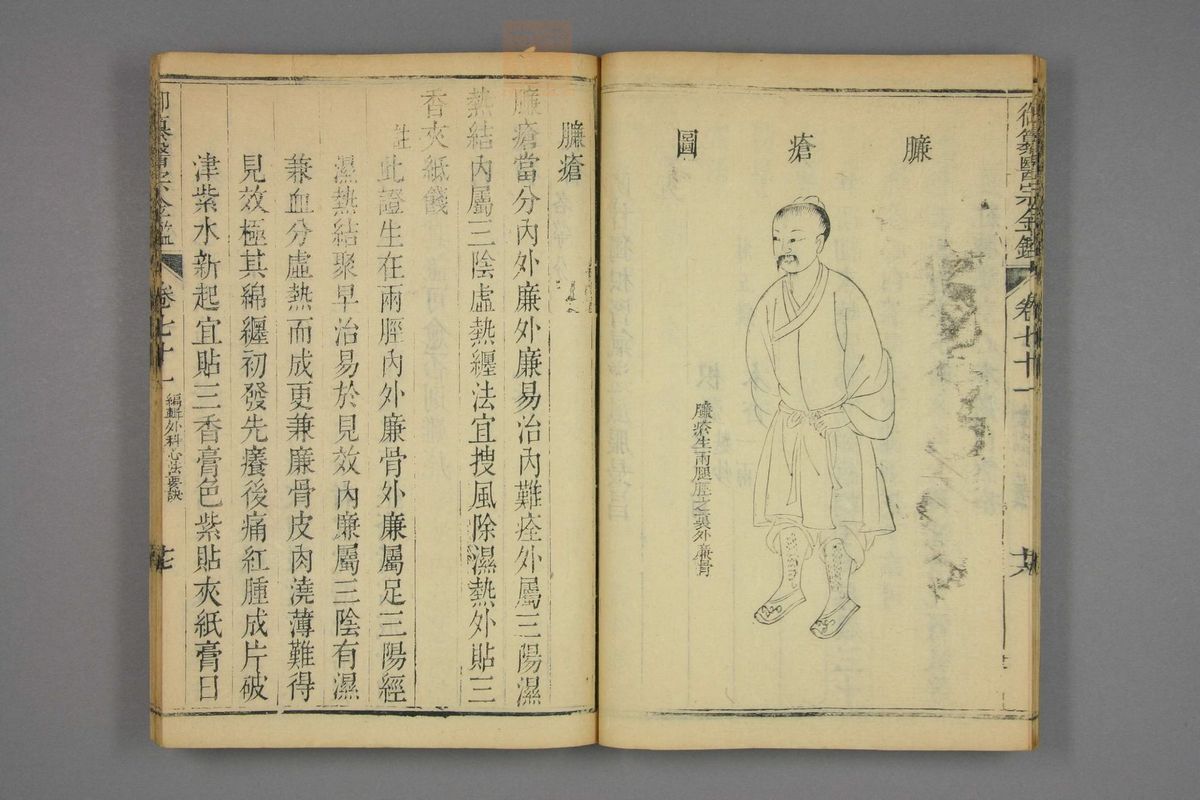 御纂醫宗金鑑 卷七十一
臁瘡圖
臁瘡生兩腿脛之裏外亷骨
臁瘡
臁瘡當分內外亷外亷易治內難痊外屬三陽濕
熱結內屬三陰虛熱纏法宜搜風除濕熱外貼三
香夾紙餞
註此證生在兩脛內外亷骨外亷屬足三陽經
濕熱結聚早治易於見效內亷屬三陰有濕
兼血分虛熱而成更兼亷骨皮肉澆薄難得
見效極其綿纏初發先癢後痛紅腫成片破
津紫水新起宜貼三香膏色紫貼夾紙膏日
御纂醫宗金鑑 卷七十一 編輯外科心法要訣